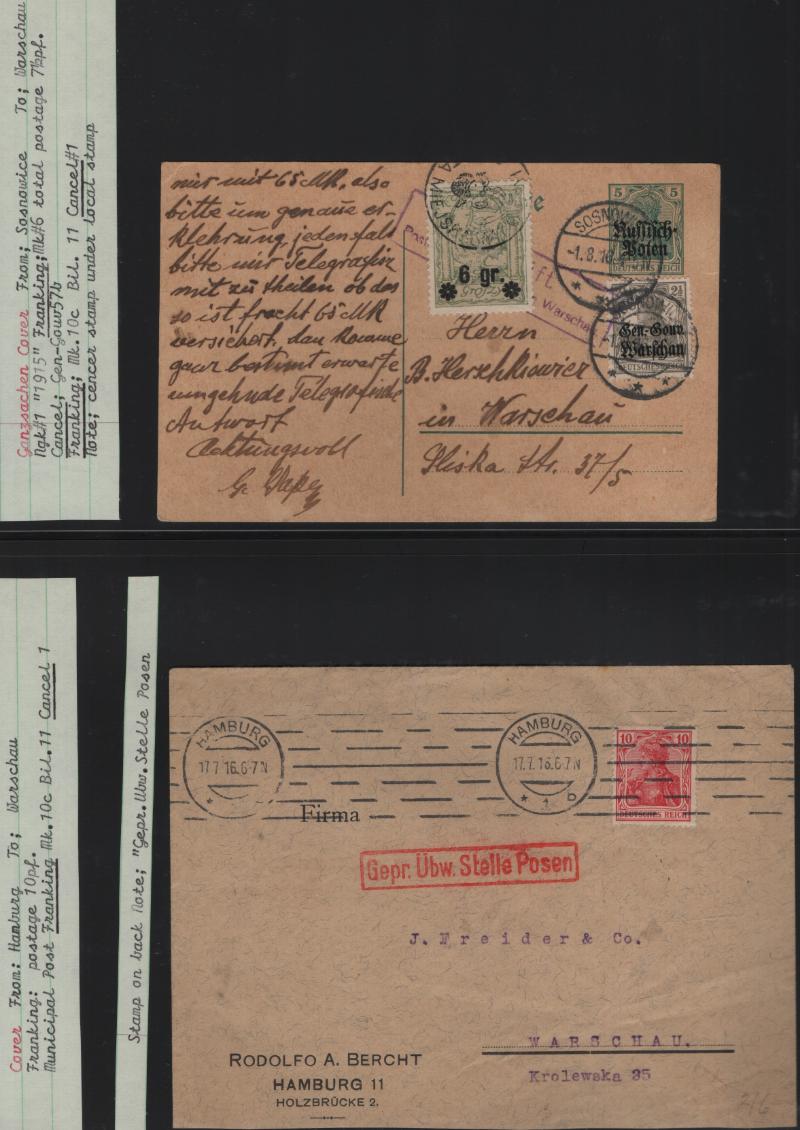 Ganzsachen Cover From; Sosnowice To; Warschau
Ngk#1 "1915" Franking;Mk#6 total postage 7½pf.
Cancel; Gen-Gouv57b
Franking; Mk.10c Bil. 11 Cancel#1
Note; cencer stamp under local stamp
mir mit 65 MR, also
bitte um genaue er-
klehrzung, jedenfals
bitte mir Telegrafisz
mit zu theilen ob das
so ist fracht 65 MR
versichert, dan komme
ganz bestimt erwarte
umgehnde Telegrafische
Antwort
Achtungsvoll
MIEJSK
6 gr.
Warschau
5 5
Russisch-
Polen
DEUTSCHES REICH
SOSNOW
-1.8.16
2½
Gen.-Gouv.
Warschau
DEUTSCHES REICH
Herrn
in Warschau
Sliska Str. 37/5
Cover From: Hamburg To; Warschau
Franking: postage 10pf.
Municipal Post Franking Mk.10c Bil.11 Cancel 1
Stamp on back Note; "Gepr.Ubw.Stelle Posen
HAMBURG
17.7.16.6-7N
HAMBURG
17.7.16.6-7N
* 1 b
10 10
DEUTSCHES REICH
Firma
Gepr. Übw. Stelle Posen
J. Freider & Co.
WARSCHAU.
Krolewska 35
RODOLFO A. BERCHT
HAMBURG 11
HOLZBRÜCKE 2.